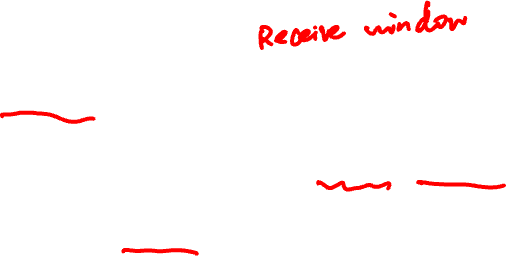 Receive window